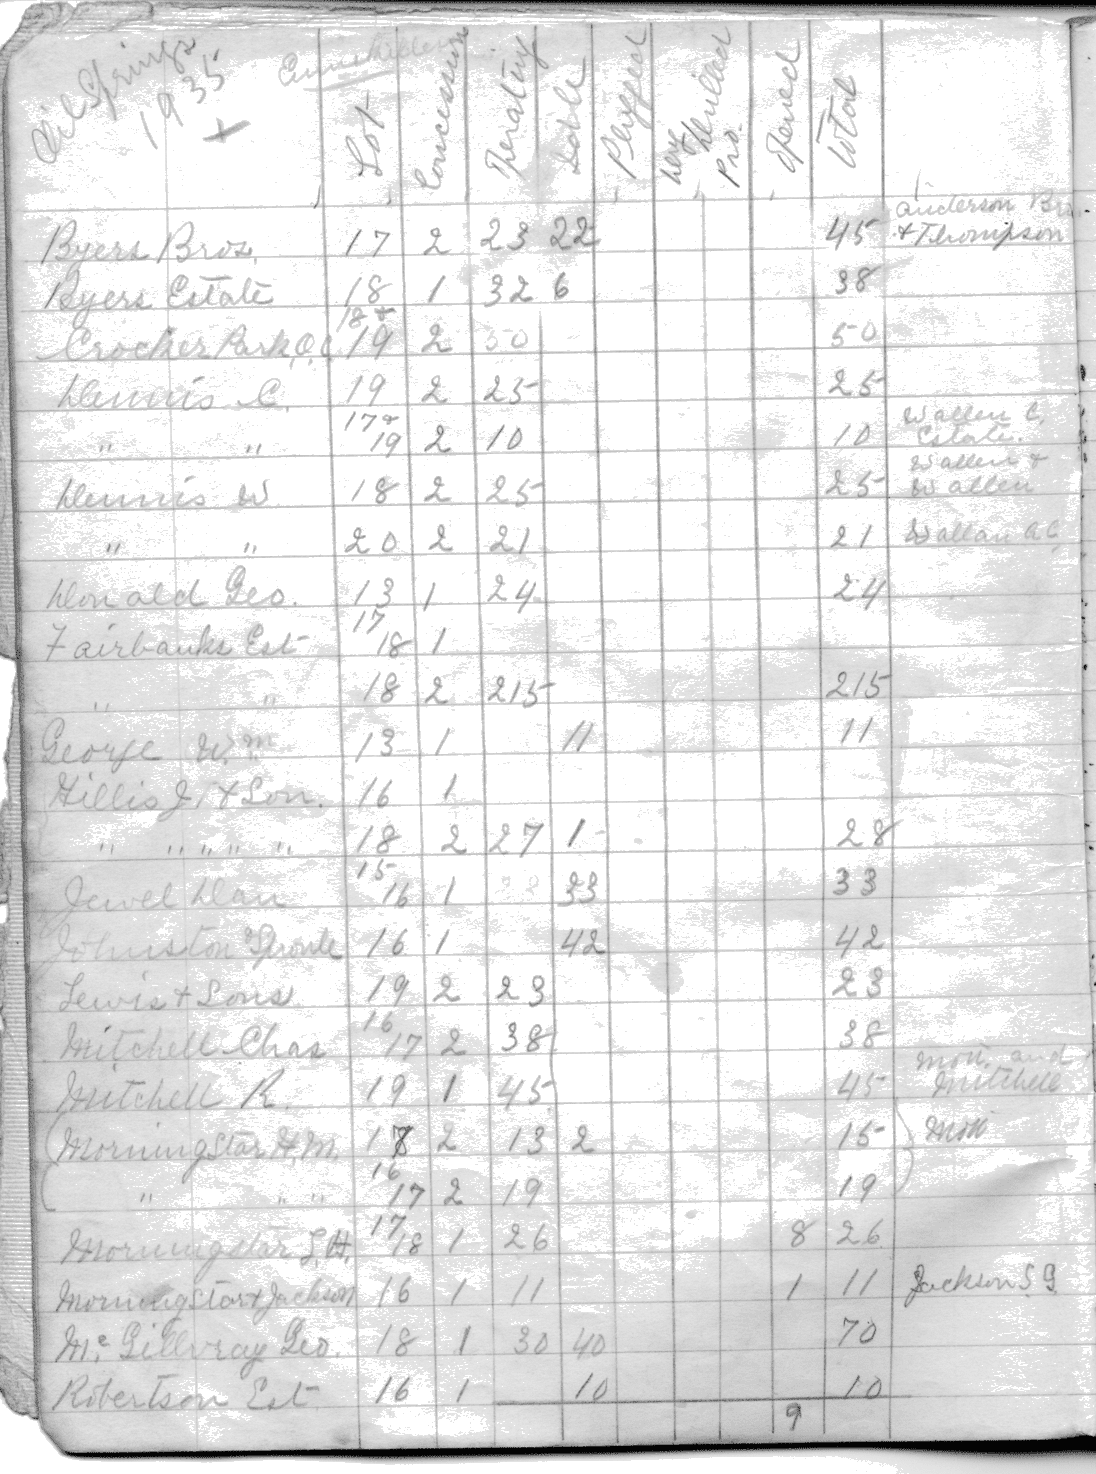 Oil Springs
1935
Enniskillen
Lot Concession Operating Idle Plugged Drilled Pro. Opened Total
Byers Bros. 17 2 23 22 45 Anderson Bro. & Thompson
Byers Estate 18 1 32 6 38
Crocker Park O. C. 18 & 19 2 50 50
Dennis C. 19 2 25 25
" " 17 & 19 2 10 10 Wallen C. Estate.
Dennis W 18 2 25 25 Wallen & Wallen
" " 20 2 21 21 Wallan A C
Donald Geo. 13 1 24 24
Fairbanks Est 17 18 1
" " 18 2 215 215
George Wm 13 1 11 11
Hillis J. & Son. 16 1
" " " " " 18 2 27 1 28
Jewel Dan 15 16 1 33 33
Johnston Sproule 16 1 42 42
Lewis & Sons 19 2 23 23
Mitchell Chas 16 17 2 38 38
Mitchell R. 19 1 45 45 Mott and Mitchell
Morningstar H. M. 18 2 13 2 15 Mott
" " " 16 17 2 19 19
Morningstar L. H. 17 18 1 26 8 26
Morningstar & Jackson 16 1 11 1 11 Jackson S. G.
Mc Gillvray Geo. 18 1 30 40 70
Robertson Est 16 1 10 10
9